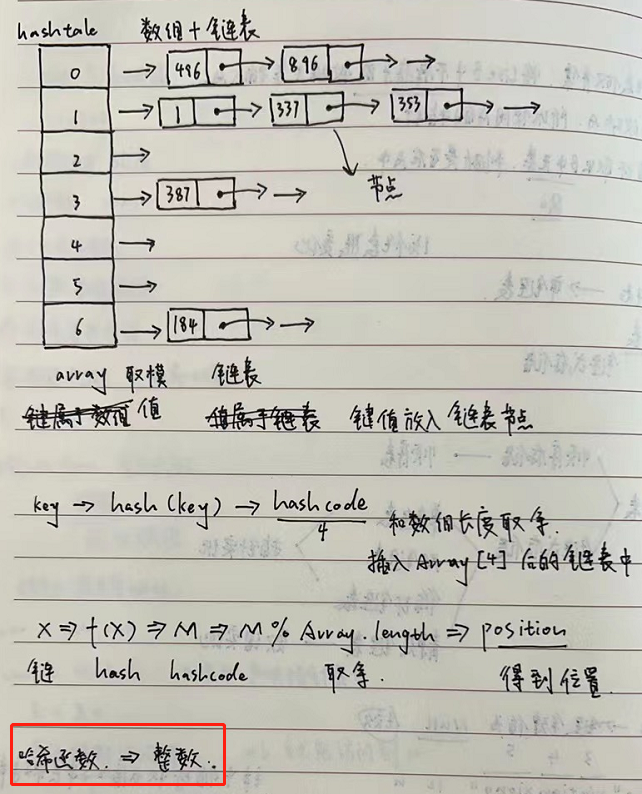 hashtale 数组+链表
0 496 896
1 1 337 353
2
3 387 节点
4
5
6 184
array 取模 链表
键属于数组 值 值属于链表 键值放入链表节点
key → hash(key) → hashcode 和数组长度取余.
4 插入Array[4]后的链表中
X ⇒ f(X) ⇒ M ⇒ M % Array.length ⇒ position
链 hash hashcode 取余. 得到位置.
哈希函数. ⇒ 整数.